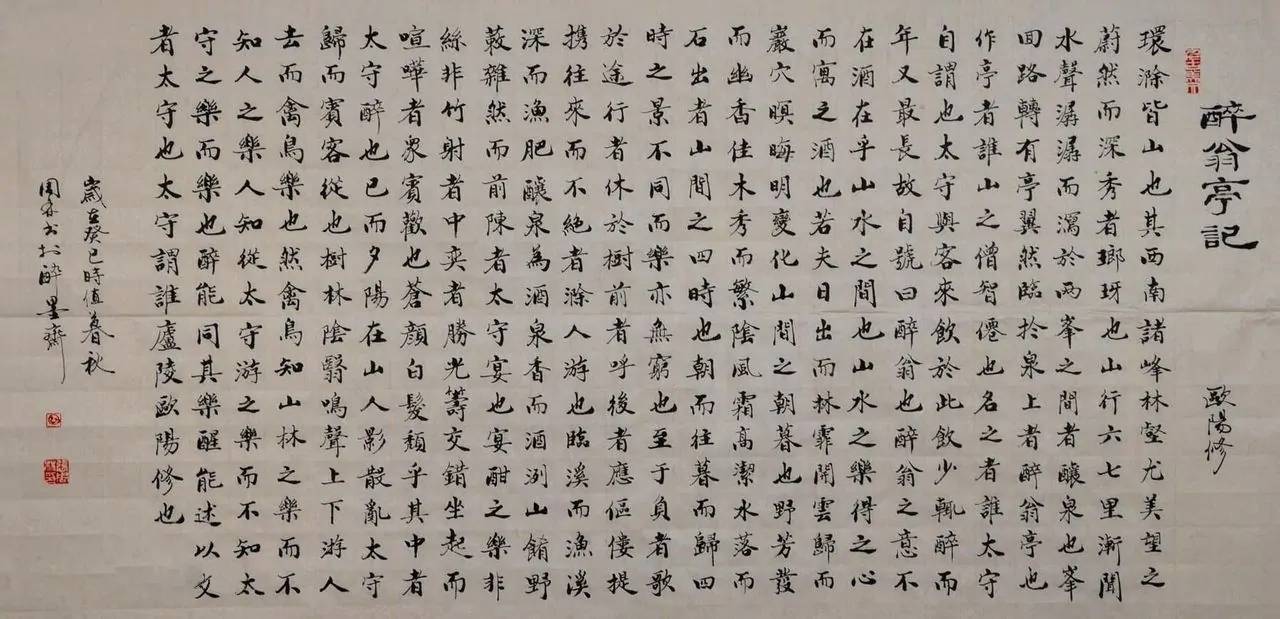 醉翁亭記
歐陽修
環滁皆山也其西南諸峰林壑尤美望之
蔚然而深秀者瑯玡也山行六七里漸聞
水聲潺潺而瀉於兩峯之間者釀泉也峯
回路轉有亭翼然臨於泉上者醉翁亭也
作亭者誰山之僧智僊也名之者誰太守
自謂也太守與客來飲於此飲少輒醉而
年又最長故自號曰醉翁也醉翁之意不
在酒在乎山水之間也山水之樂得之心
而寓之酒也若夫日出而林霏開雲歸而
巖穴暝晦明變化山間之朝暮也野芳發
而幽香佳木秀而繁陰風霜高潔水落而
石出者山間之四時也朝而往暮而歸四
時之景不同而樂亦無窮也至于負者歌
於途行者休於樹前者呼後者應傴僂提
携往來而不絕者滁人游也臨溪而漁溪
深而漁肥釀泉為酒泉香而酒洌山餚野
蔌雜然而前陳者太守宴也宴酣之樂非
絲非竹射者中奕者勝光籌交錯坐起而
喧嘩者眾賓歡也蒼顏白髮頹乎其中者
太守醉也已而夕陽在山人影散亂太守
歸而賓客從也樹林陰翳鳴聲上下游人
去而禽鳥樂也然禽鳥知山林之樂而不
知人之樂人知從太守游之樂而不知太
守之樂而樂也醉能同其樂醒能述以文
者太守也太守謂誰廬陵歐陽修也
歲在癸巳時值春秋
書於醉墨齋